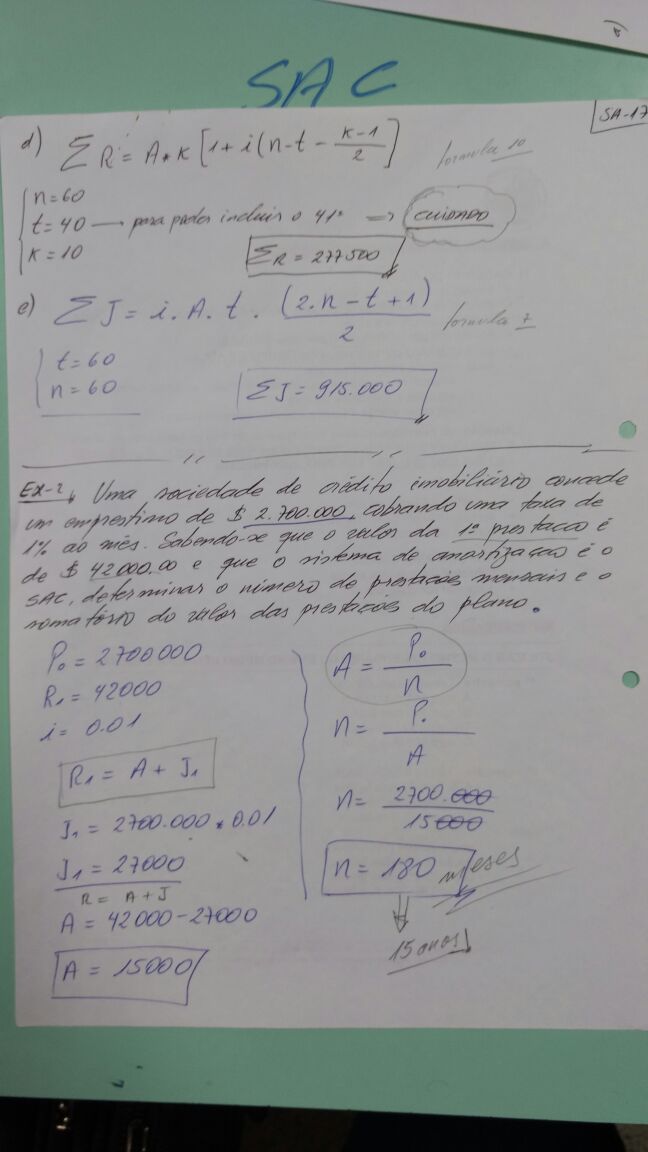 SAC
SA-17
d) ∑R = A*K [1 + i(n-t - (K-1)/2)]
formula 10
n=60
t=40 — para poder incluir o 41º => cuidado
K=10
∑R = 277500
e) ∑J = i.A.t. (2.n - t + 1)/2
formula 7
t=60
n=60
∑J = 915.000
Ex-2, Uma sociedade de crédito imobiliário concede
um emprestimo de $ 2.700.000, cobrando uma taxa de
1% ao mês. Sabendo-se que o valor da 1ª prestação é
de $ 42000.00 e que o sistema de amortização é o
SAC, determinar o número de prestações mensais e o
somatório do valor das prestações do plano.
P₀ = 2700000
R₁ = 42000
i = 0.01
R₁ = A + J₁
J₁ = 2700.000 * 0.01
J₁ = 27000
R = A+J
A = 42000 - 27000
A = 15000
A = P₀/n
n = P₀/A
n = 2700.000/15000
n = 180 meses
15 anos